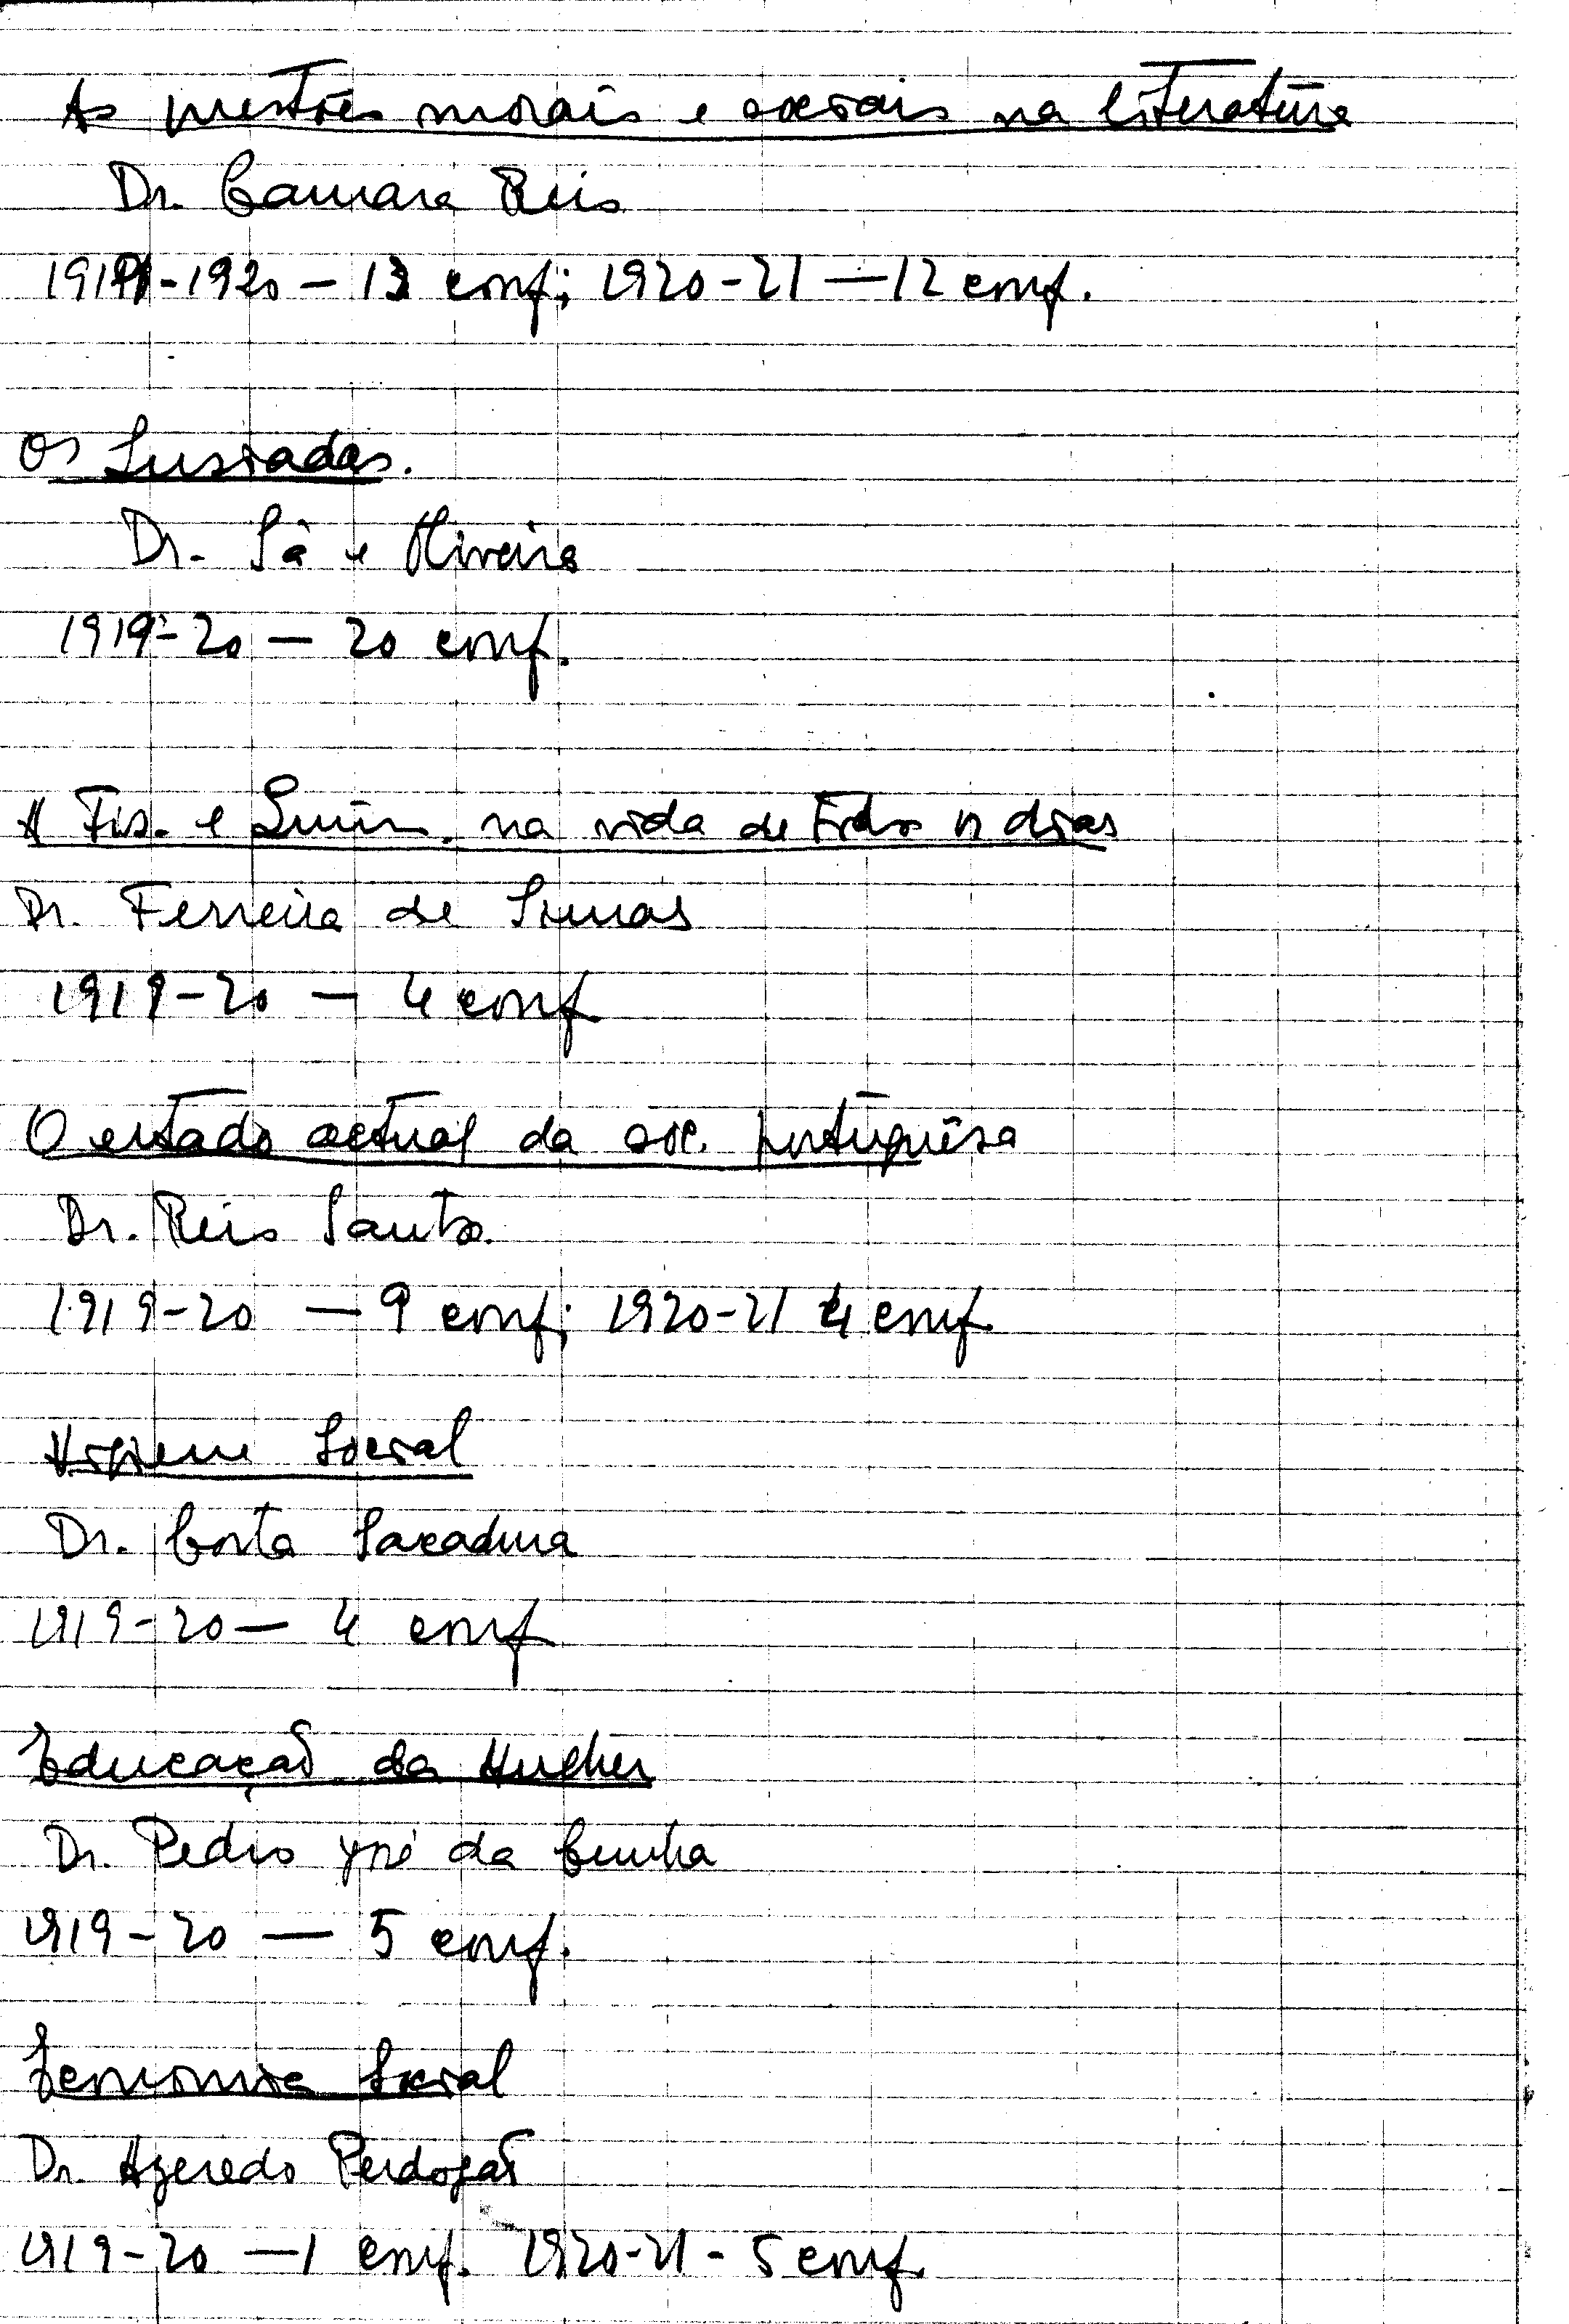 As questões morais e sociais na literatura
Dr. Camara Reis
1919-1920 — 13 conf; 1920-21 — 12 conf.
Os Lusiadas.
Dr. Sá e Oliveira
1919-20 — 20 conf.
A Fis. e Quím. na vida de todos os dias
Dr. Ferreira de Simas
1919-20 — 4 conf
O estado actual da soc. portuguêsa
Dr. Reis Santos.
1919-20 — 9 conf; 1920-21 4 conf
Higiene Social
Dr. Costa Sacadura
1919-20 — 4 conf
Educação da Mulher
Dr. Pedro José da Cunha
1919-20 — 5 conf.
Economia Social
Dr. Azeredo Perdogão
1919-20 — 1 conf. 1920-21 - 5 conf.